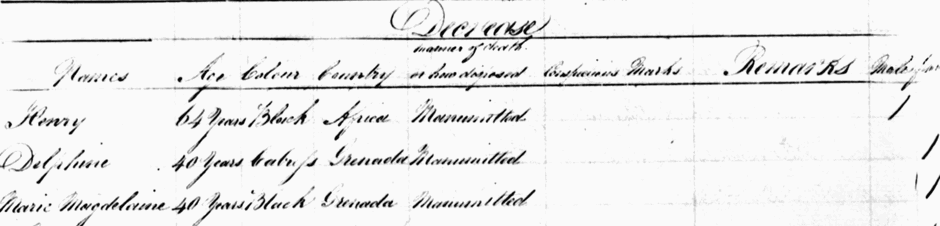 Decrease
manner of death
Names Age Colour Country or how disposed Conspicuous Marks Remarks Males
Henry 64 Years Black Africa Manumitted 1
Delphine 40 Years Cabress Grenada Manumitted 1
Marie Magdelaine 40 Years Black Grenada Manumitted 1